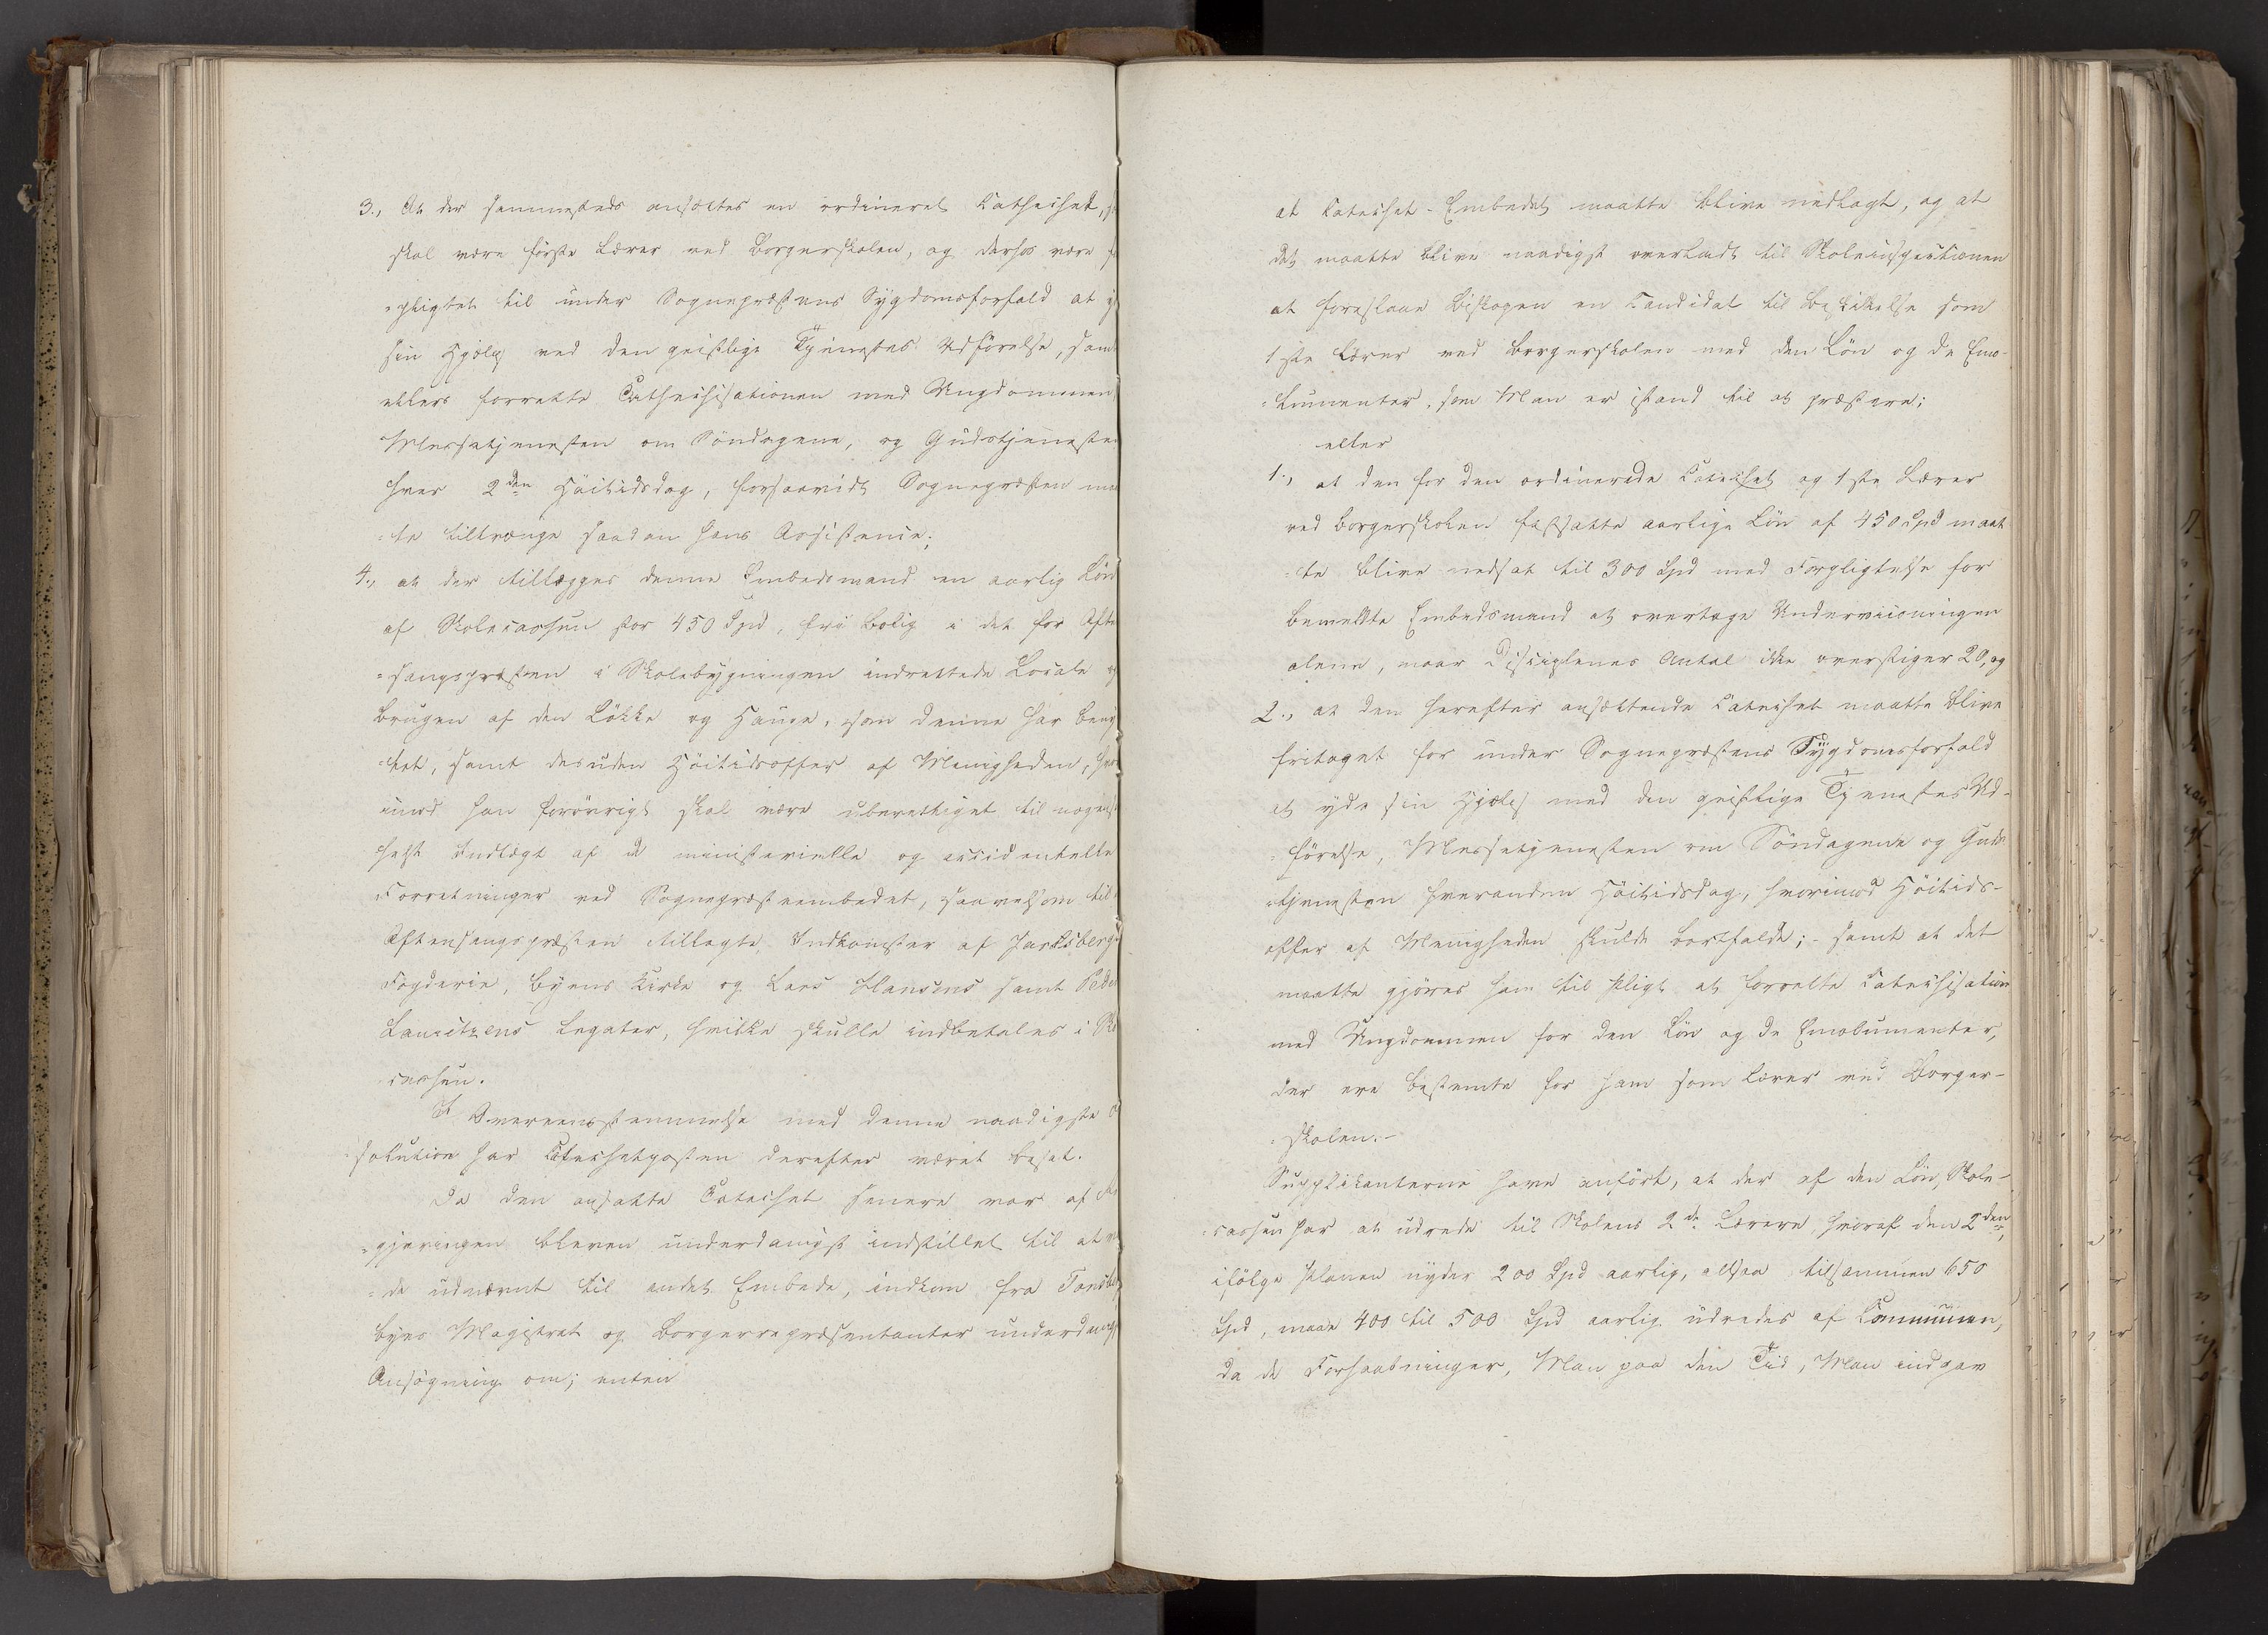 3., At der sammesteds ansættes en ordineret Cathechet,
skal være første Lærer ved Borgerskolen, og derhos være
=pligtet til under Sognepræstens Sygdomsforfald at
sin Hjælp ved den geistlige Tjenestes Udførelse, samt
ellers forrette Cathechisationen med Ungdommen
Messetjenesten om Søndagene, og Gudstjenesten
hver 2den Høitidsdag, forsaavidt Sognepræsten
=te tiltrænge saadan hans Assistence;
4., at der tillægges denne Embedsmand en aarlig Løn
af Skolecassen stor 450 Spd, frie Bolig i det for Afte
=sangspræsten i Skolebygningen indrettede Locale og
Brugen af den Løkke og Hauge, som denne har beny
=tet, samt desuden Høitidsoffer af Menigheden, hvor
imod han forøvrigt skal være uberettiget til nogen
helst Indtægt af de ministerielle og accidentelle
Forretninger ved Sognepræsteembedet, saavelsom til
Aftensangspræsten tillagte Indkomster af Jarlsbergs
Fogderie, Byens Kirke og Lars Hansens samt Peder
Lauritzens Legater, hvilke skulle indbetales i Sko
cassen.
I Overeensstemmelse med denne naadigste
solution har Catechetposten derefter været besat.
Da den ansatte Catechet senere var af Re
=gjeringen bleven underdanigst indstillet til at
=de udnævnt til andet Embede, indkom fra Tønsberg
Byes Magistrat og Borgerrepræsentanter underdanigst
Ansøgning om; enten
at Catechet-Embedet maatte blive nedlagt, og at
det maatte blive naadigst overladt til Skoleinspectionen
at foreslaae Biskopen en Candidat til Beskikkelse som
1ste Lærer ved Borgerskolen med den Løn og de Emo-
=lumenter, som Man er istand til at præstere;
eller
1., at den for den ordinerede Catechet og 1ste Lærer
ved Borgerskolen fastsatte aarlige Løn af 450 Spd maat
=te blive nedsat til 300 Spd med Forpligtelse for
bemeldte Embedsmand at overtage Underviisningen
alene, naar Disciplenes Antal ikke overstiger 20, og
2., at den herefter ansættende Catechet maatte blive
fritaget for under Sognepræstens Sygdomsforfald
at yde sin Hjælp med den geistlige Tjenestes Ud-
=førelse, Messetjenesten om Søndagene og Guds
=tjenesten hveranden Høitidsdag, hvorimod Høitids-
offer af Menigheden skulde bortfalde; - samt at det
maatte gjøres ham til Pligt at forrette Catechisation
med Ungdommen for den Løn og de Emolumenter,
der ere bestemte for ham som Lærer ved Borger-
=skolen.-
Supplikanterne have anført, at der af den Løn, Skole-
=cassen har at udrede til Skolens 2de Lærere, hvoraf den 2den,
ifølge Planen nyder 200 Spd aarlig, altsaa tilsammen 650
Spd, maae 400 til 500 Spd aarlig udredes af Communen,
da de Forhaabninger, Man paa den Tid, Man indgav